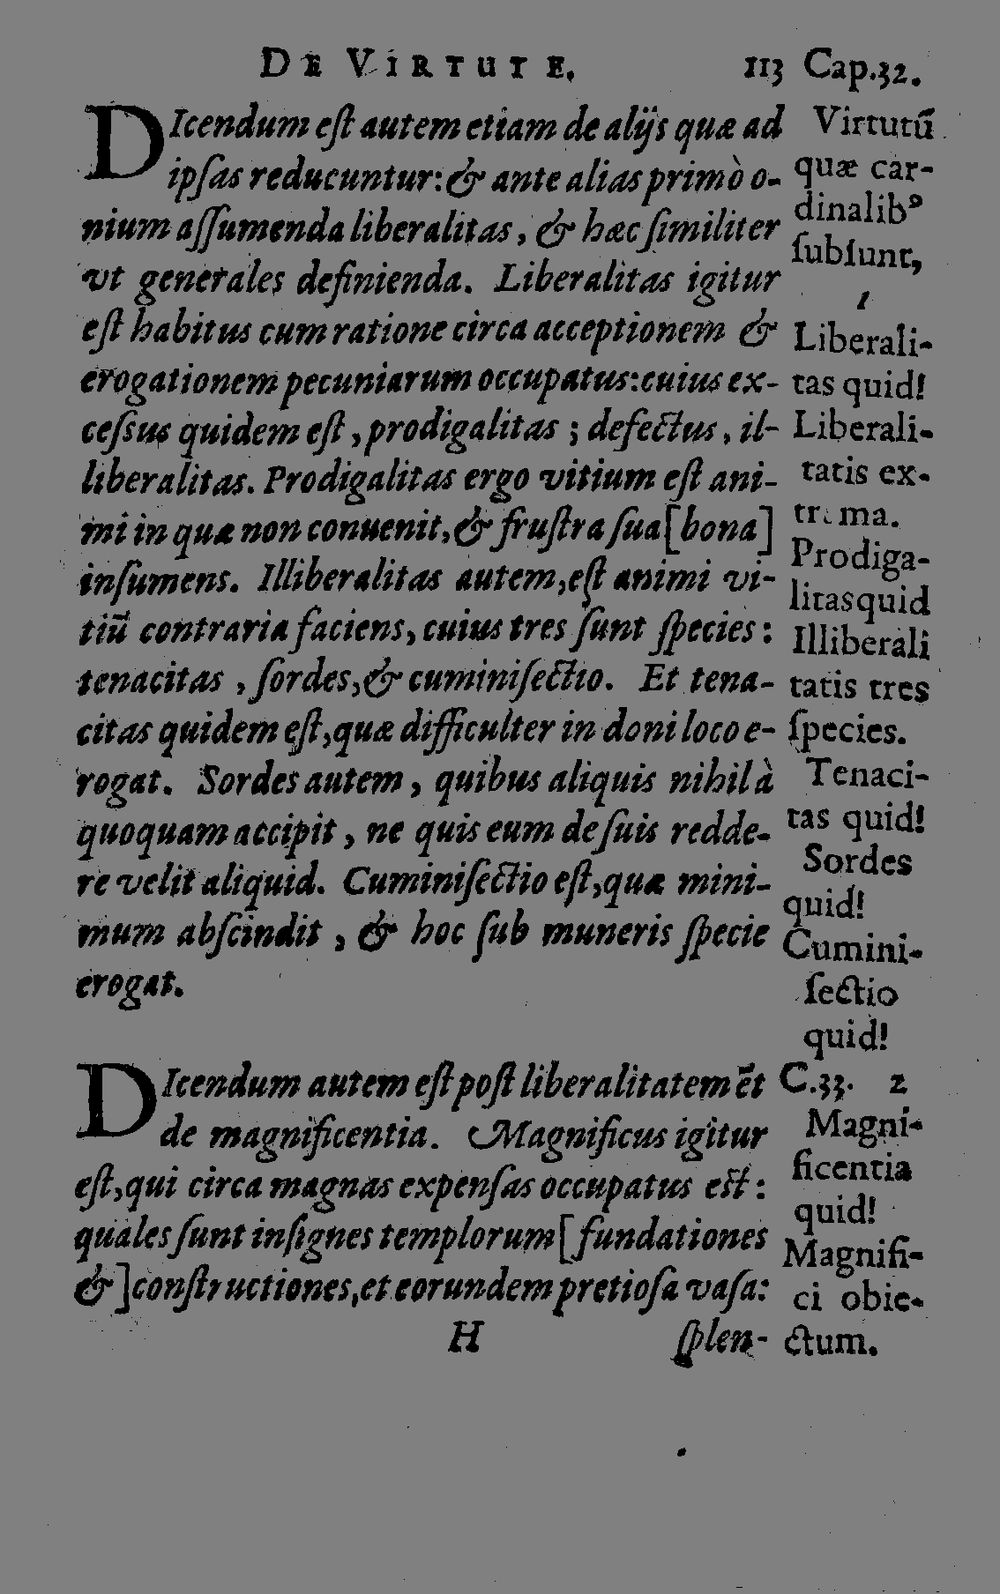 DE VIRTUTE. 113 Cap.32.
DIcendum eſt autem etiam de alijs quæ ad
ipſas reducuntur: & ante alias primò o-
nium aſſumenda liberalitas, & hæc ſimiliter
vt generales definienda. Liberalitas igitur
eſt habitus cum ratione circa acceptionem &
erogationem pecuniarum occupatus: cuius ex-
ceſsus quidem eſt, prodigalitas; defectus, il-
liberalitas. Prodigalitas ergo vitium eſt ani-
mi in quæ non conuenit, & fruſtra ſua [bona]
inſumens. Illiberalitas autem, eſt animi vi-
tiū contraria faciens, cuius tres ſunt ſpecies:
tenacitas, ſordes, & cuminiſectio. Et tena-
citas quidem eſt, quæ difficulter in doni loco e-
rogat. Sordes autem, quibus aliquis nihil à
quoquam accipit, ne quis eum de ſuis redde-
re velit aliquid. Cuminiſectio eſt, quæ mini-
mum abſcindit, & hoc ſub muneris ſpecie
erogat.
Virtutū
quæ car-
dinalibꝰ
ſubſunt,
1
Liberali-
tas quid!
Liberali-
tatis ex-
trema.
Prodiga-
litas quid
Illiberali
tatis tres
ſpecies.
Tenaci-
tas quid!
Sordes
quid!
Cumini-
ſectio
quid!
DIcendum autem eſt poſt liberalitatem ēt
de magnificentia. Magnificus igitur
eſt, qui circa magnas expenſas occupatus eſt:
quales ſunt inſignes templorum [fundationes
&] conſtructiones, et eorundem pretioſa vaſa:
C.33. 2
Magni-
ficentia
quid!
Magnifi-
ci obie-
ctum.
H ſplen-